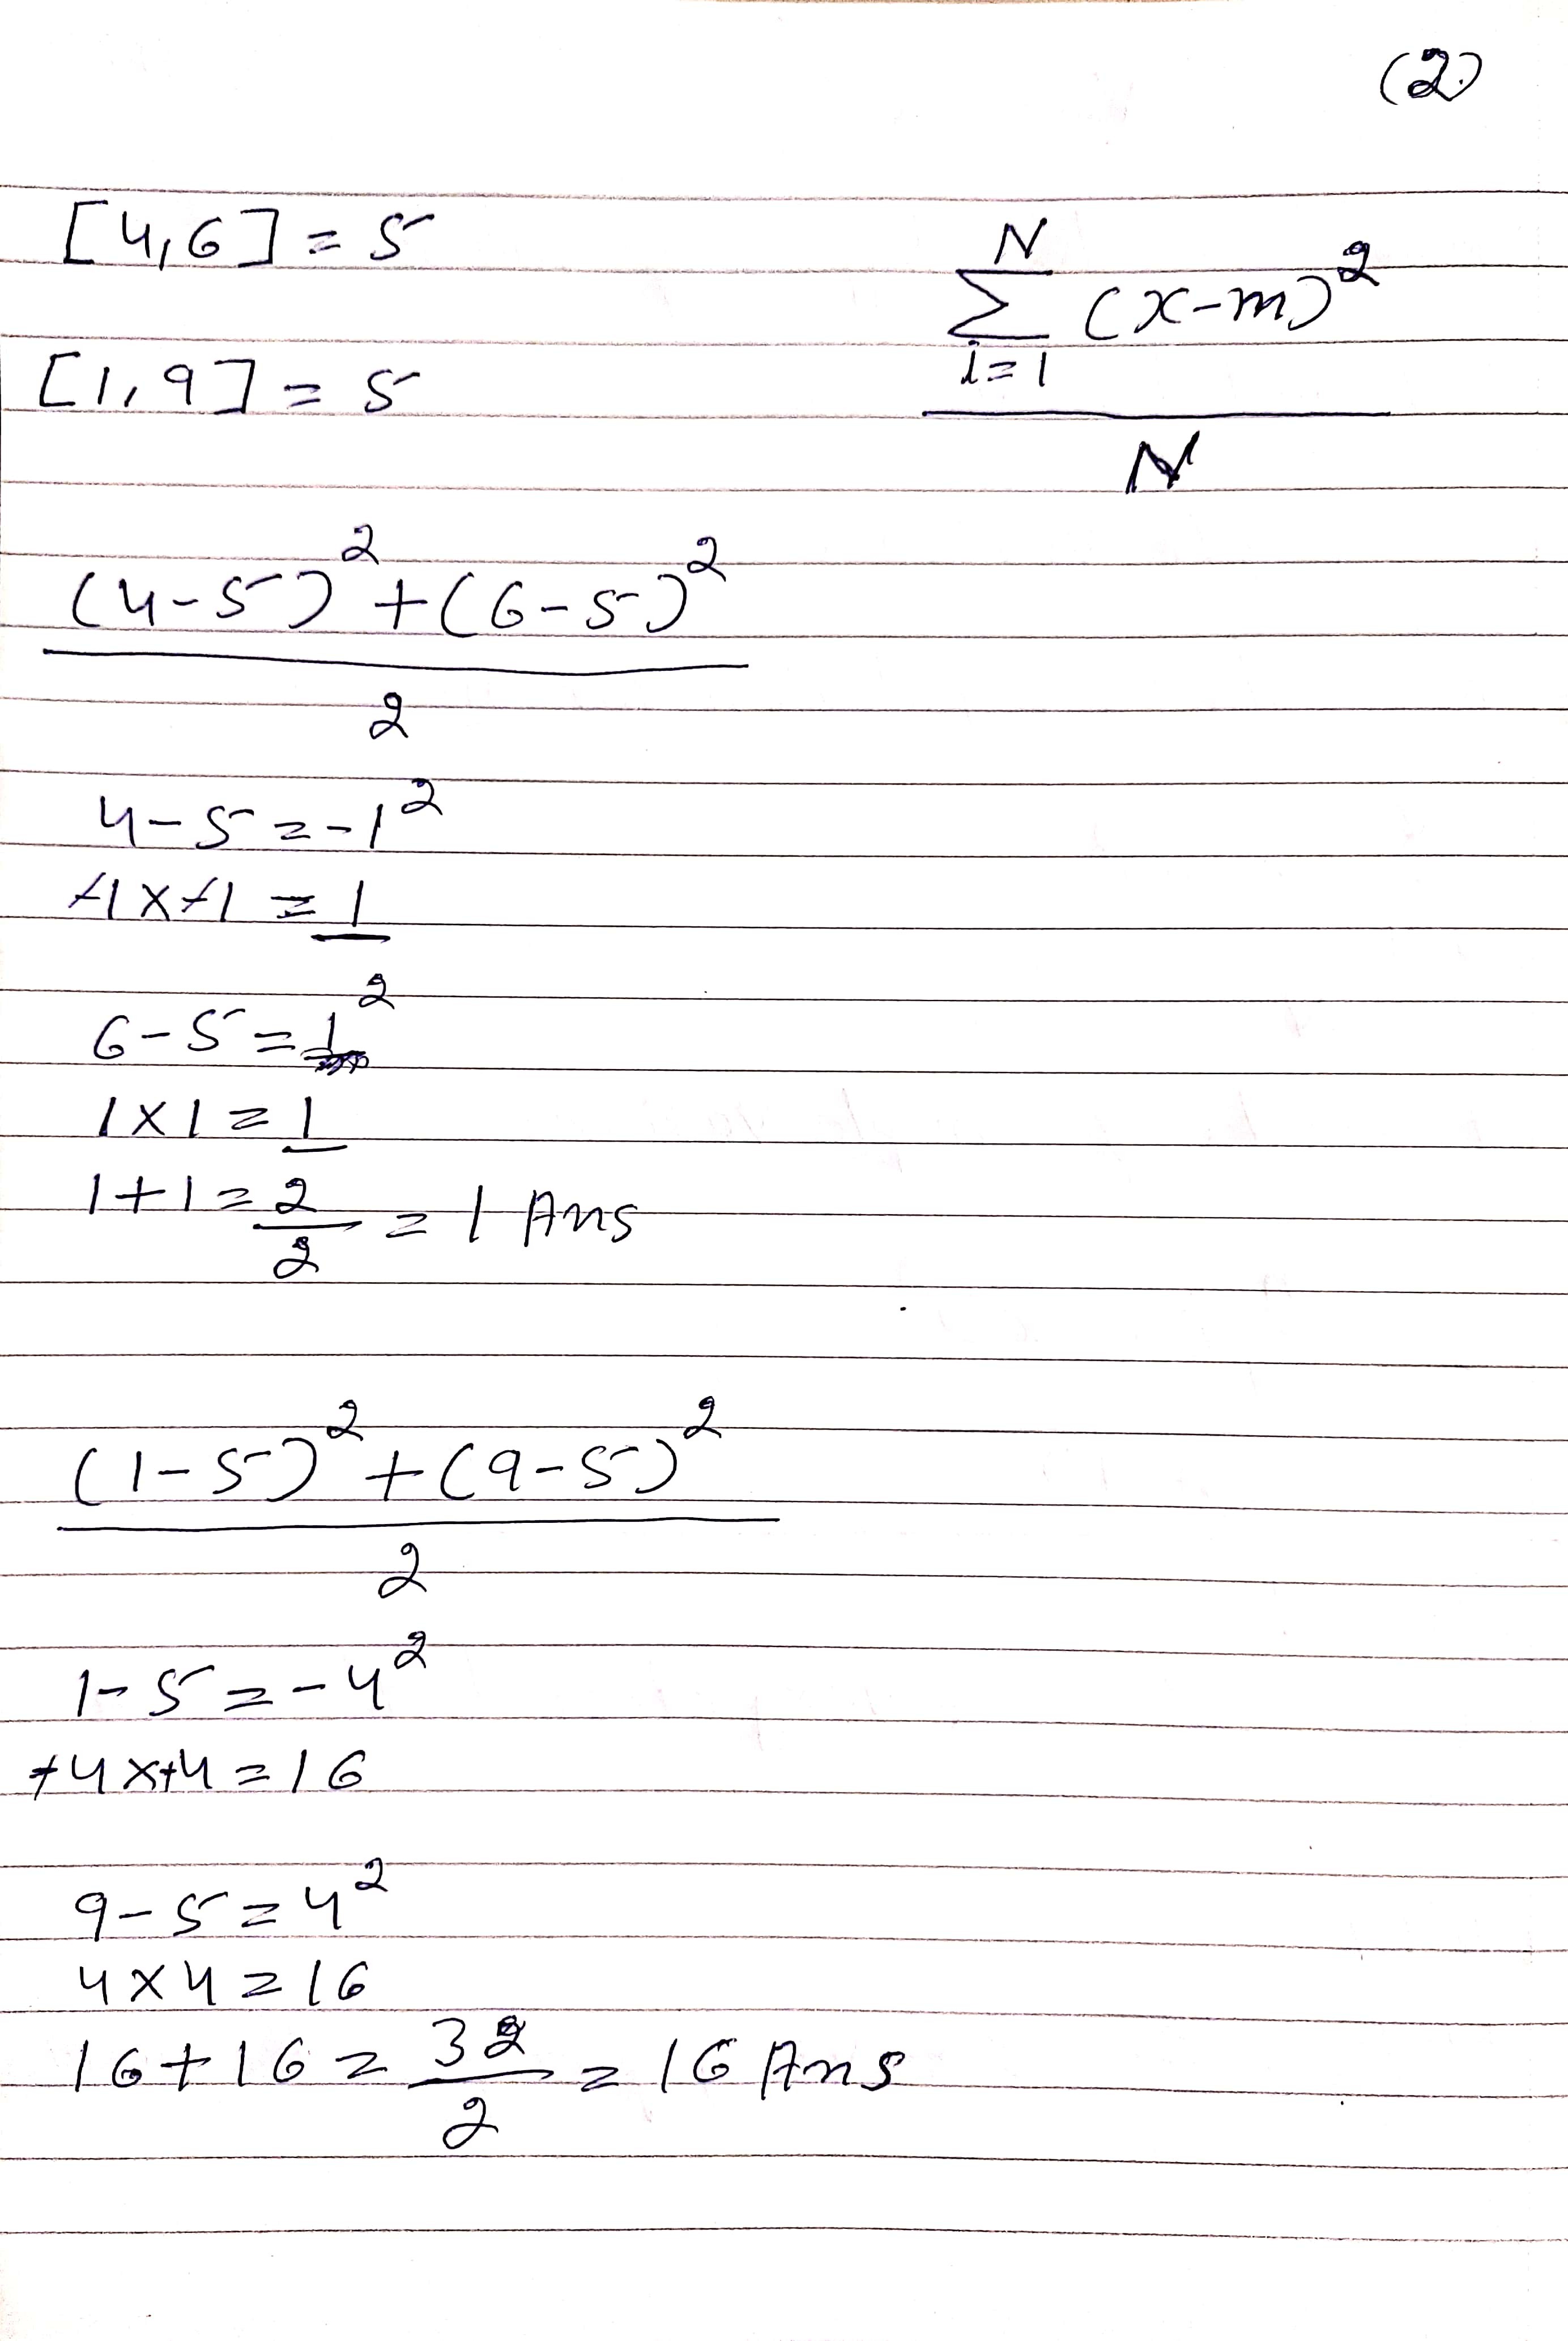 (2)
[4,6] = 5
[1,9] = 5
N
Σ (x-m)²
i=1
N
(4-5)² + (6-5)²
2
4-5 = -1²
+1 x +1 = 1
6-5 = 1²
1x1 = 1
1+1 = 2/2 = 1 Ans
(1-5)² + (9-5)²
2
1-5 = -4²
+4 x +4 = 16
9-5 = 4²
4x4 = 16
16+16 = 32/2 = 16 Ans